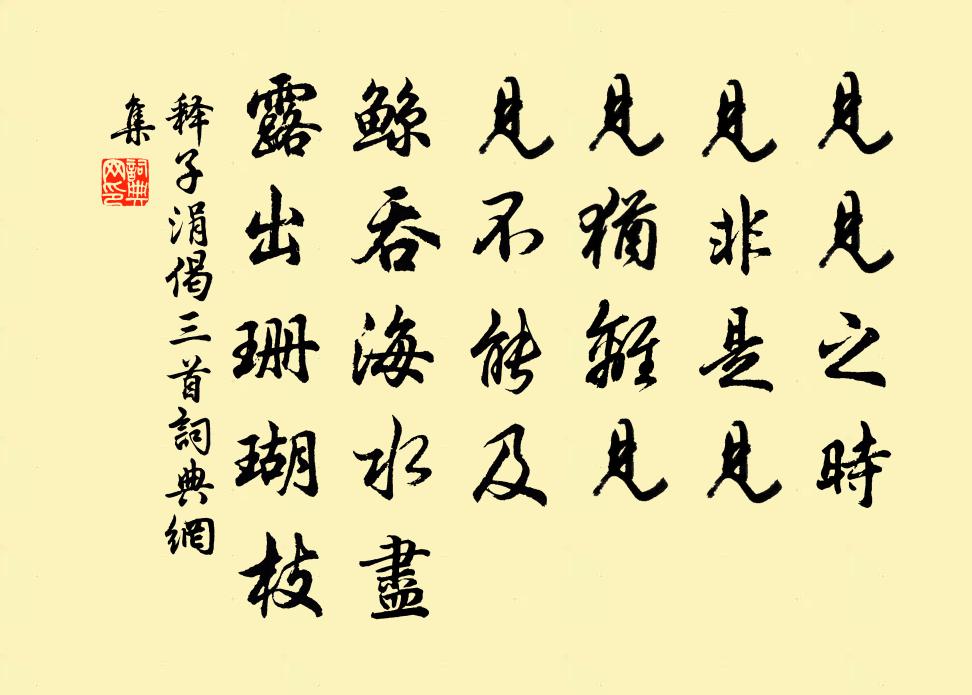 見見之時
見非是見
見猶離見
見不能及
鲸吞海水盡
露出珊瑚枝
释子涓偈三首詞典網
集
詞典网印